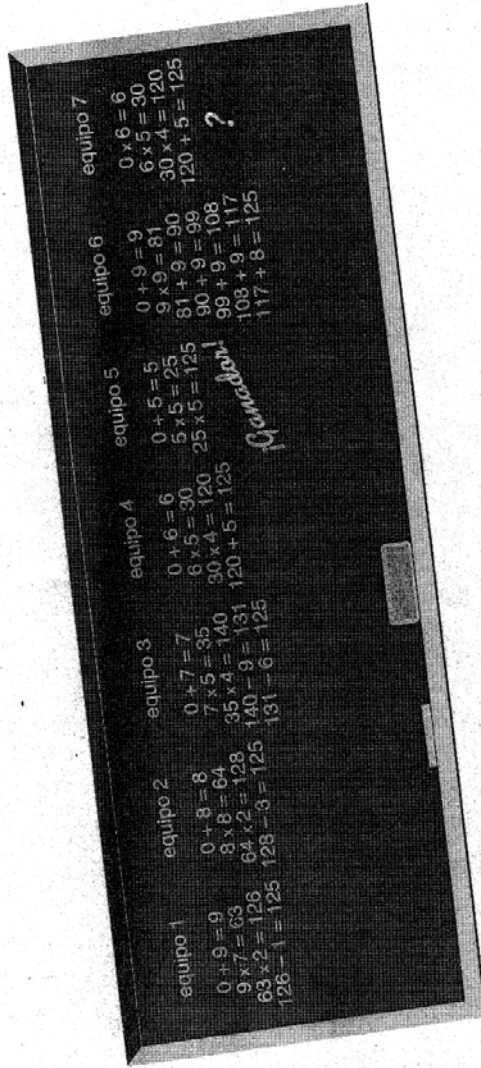 equipo 1
0 + 9 = 9
9 x 7 = 63
63 x 2 = 126
126 – 1 = 125
equipo 2
0 + 8 = 8
8 x 8 = 64
64 x 2 = 128
128 – 3 = 125
equipo 3
0 + 7 = 7
7 x 5 = 35
35 x 4 = 140
140 – 9 = 131
131 – 6 = 125
equipo 4
0 + 6 = 6
6 x 5 = 30
30 x 4 = 120
120 + 5 = 125
equipo 5
0 + 5 = 5
5 x 5 = 25
25 x 5 = 125
¡Ganador!
equipo 6
0 + 9 = 9
9 x 9 = 81
81 + 9 = 90
90 + 9 = 99
99 + 9 = 108
108 + 9 = 117
117 + 8 = 125
equipo 7
0 x 6 = 6
6 x 5 = 30
30 x 4 = 120
120 + 5 = 125
?